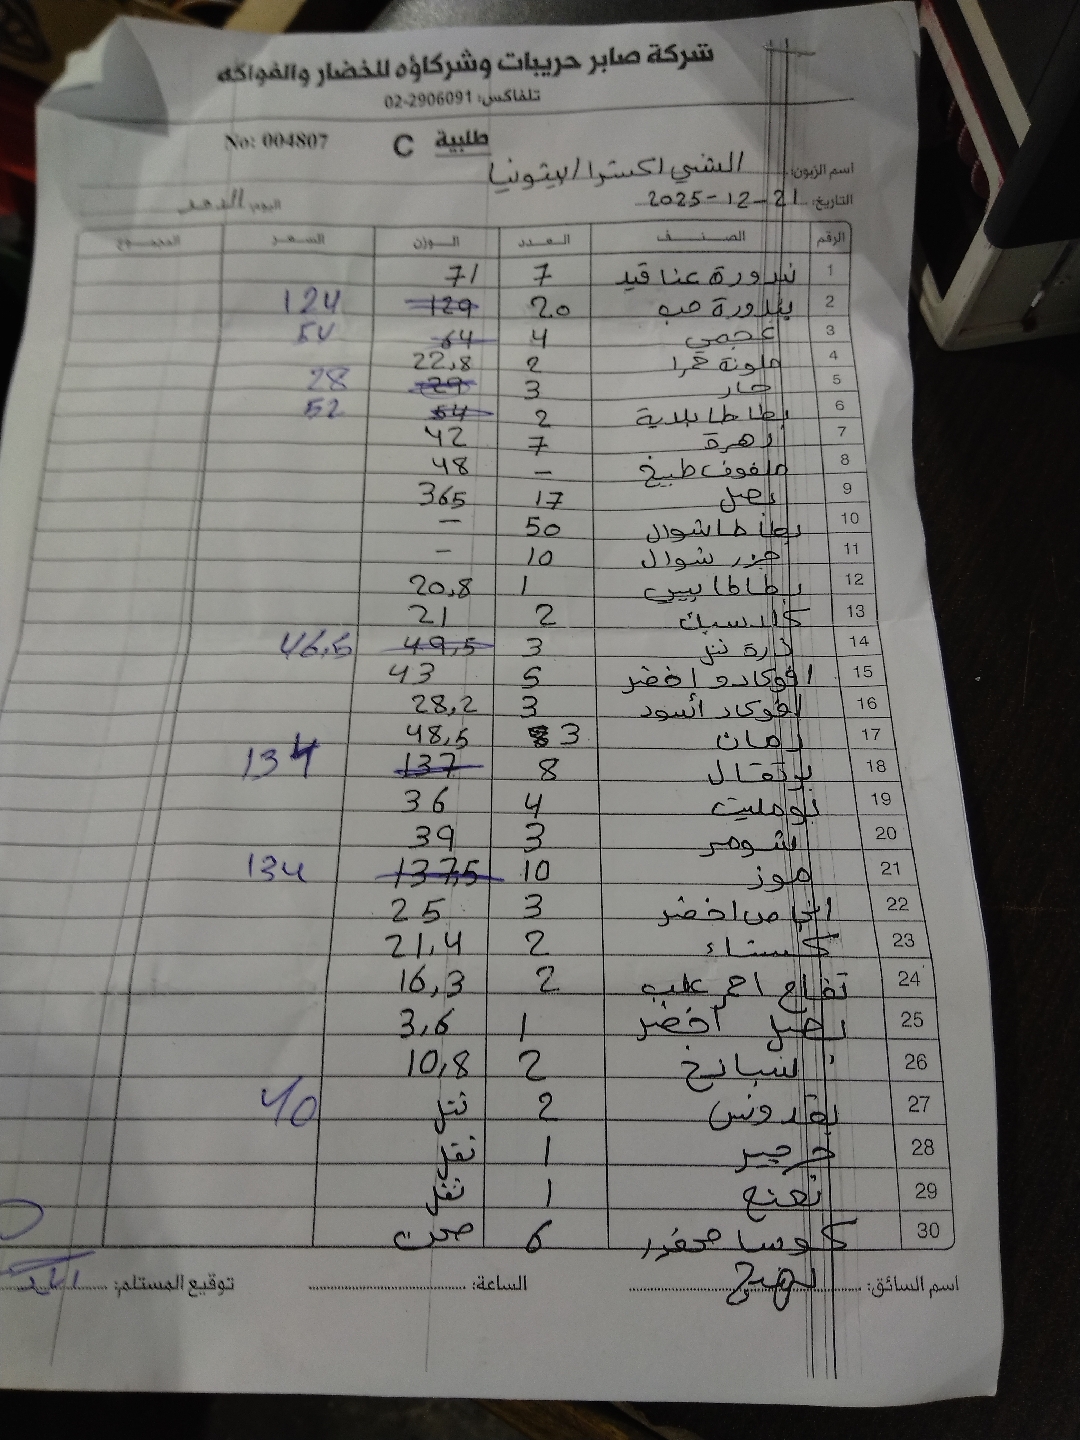 شركة صابر حريبات وشركاؤه للخضار والفواكه
تلفاكس: 02-2906091
طلبية C No: 004807
اسم الزبون: الشني اكسترا / بيتونيا
التاريخ: 21-12-2025 اليوم:
الرقم الصنف العدد الوزن السعر المجموع
1 بندورة عناقيد 7 71
2 بندورة حب 20 129 124
3 عجمي 4 64 54
4 ملونة حمرا 2 22,8
5 حار 3 29 28
6 بطاطا بلدية 2 54 52
7 زهرة 7 42
8 ملفوف طبيخ – 48
9 بصل 17 365
10 بطاطا شوال 50 –
11 جزر شوال 10 –
12 بطاطا بيبي 1 20,8
13 2 21
14 ذرة 3 49,5 46,5
15 افوكادو اخضر 5 43
16 افوكاد أسود 3 28,2
17 رمان 3 48,5
18 برتقال 8 137 134
19 بومليت 4 36
20 شومر 3 39
21 موز 10 137,5 134
22 اجاص اخضر 3 25
23 كستناء 2 21,4
24 تفاح احمر علب 2 16,3
25 بصل أخضر 1 3,6
26 سبانخ 2 10,8
27 بقدونس 2 40
28 جرجير 1 نقل
29 نعنع 1 نقل
30 كوسا محفور 6 صحن
اسم السائق: بهيج الساعة: توقيع المستلم: